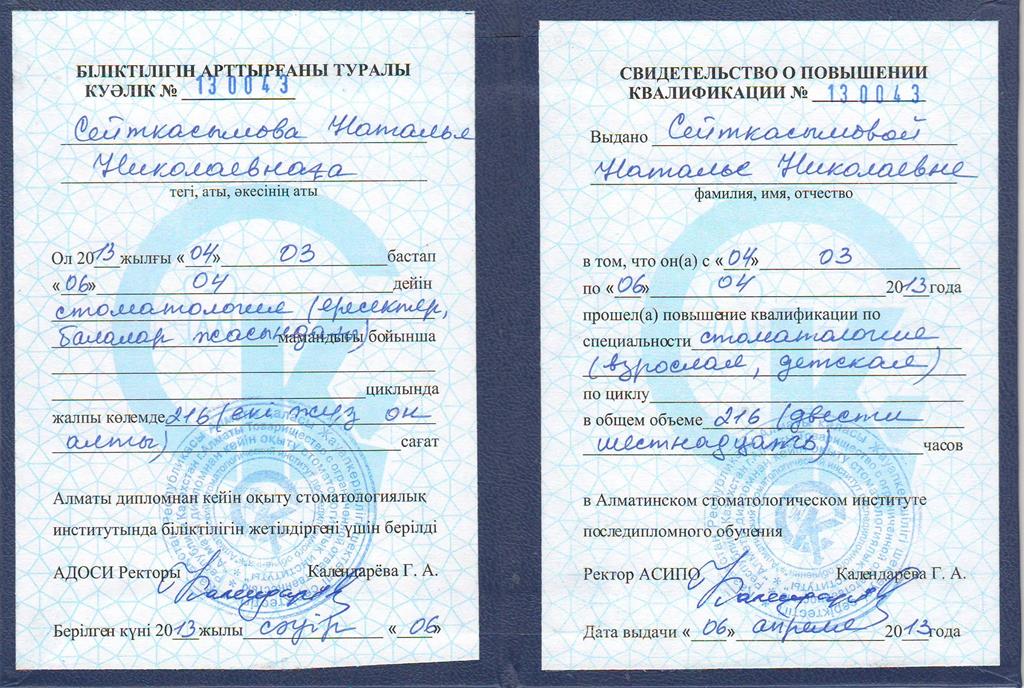 БІЛІКТІЛІГІН АРТТЫРҒАНЫ ТУРАЛЫ
КУӘЛІК № 130043
Сейткасымова Наталья
Николаевнаға
тегі, аты, әкесінің аты
Ол 2013 жылғы «04» 03 бастап
«06» 04 дейін
стоматология (ересектер,
балалар жасындағы) мамандығы бойынша
циклында
жалпы көлемде 216 (екі жүз он
алты) сағат
Алматы дипломнан кейін оқыту стоматологиялық
институтында біліктілігін жетілдіргені үшін берілді
АДОСИ Ректоры Календарёва Г. А.
Берілген күні 2013 жылы сәуір «06»
СВИДЕТЕЛЬСТВО О ПОВЫШЕНИИ
КВАЛИФИКАЦИИ № 130043
Выдано Сейткасымовой
Наталье Николаевне
фамилия, имя, отчество
в том, что он(а) с «04» 03
по «06» 04 2013 года
прошел(а) повышение квалификации по
специальности стоматология
(взрослая, детская)
по циклу
в общем объеме 216 (двести
шестнадцать) часов
в Алматинском стоматологическом институте
последипломного обучения
Ректор АСИПО Календарёва Г. А.
Дата выдачи «06» апреля 2013 года